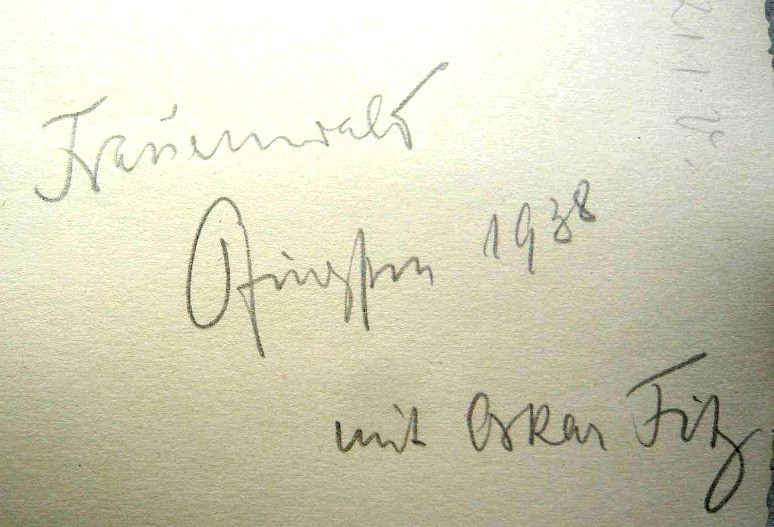 Frauenwald
Pfingsten 1938
mit Oskar Fitz